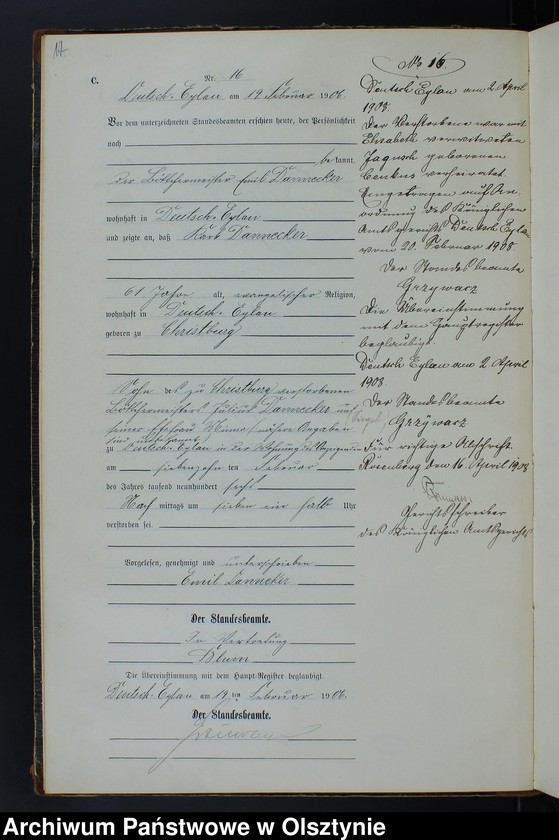 17
C.
Nr. 16
Deutsch-Eylau am 19 Februar 1906.
Vor dem unterzeichneten Standesbeamten erschien heute, der Persönlichkeit
nach
bekannt,
der Böttchermeister Emil Dannecker
wohnhaft in Deutsch-Eylau
und zeigte an, daß Karl Dannecker
61 Jahre alt, evangelischer Religion,
wohnhaft in Deutsch-Eylau
geboren zu Christburg
Sohn des zu Christburg verstorbenen
Böttchermeisters Julius Dannecker und
seiner Ehefrau Minna, nähere Angaben
sind unbekannt,
zu Deutsch-Eylau in der Wohnung des Anzeigenden
am siebenzehn ten Februar
des Jahres tausend neunhundert sechs
Nach mittags um sieben ein halb Uhr
verstorben sei.
Vorgelesen, genehmigt und unterschrieben
Emil Dannecker
Der Standesbeamte.
In Vertretung
Blum
Die Übereinstimmung mit dem Haupt-Register beglaubigt.
Deutsch-Eylau am 19 ten Februar 1906.
Der Standesbeamte.
No 16.
Deutsch Eylau am 2. April
1908.
Der Verstorbene war mit
Elisabeth verwitweten
Jagusch geborenen
verheiratet.
Eingetragen auf An-
ordnung des Königlichen
Amtsgerichts Deutsch Eylau
vom 20. Februar 1908
Der Standesbeamte
Grzywacz
Die Übereinstimmung
mit dem Hauptregister
beglaubigt.
Deutsch Eylau am 2. April
1908
Der Standesbeamte
Grzywacz
Für richtige Abschrift.
Rosenberg den 16. April 1908
Gerichtsschreiber
des Königlichen Amtsgerichts
Archiwum Państwowe w Olsztynie